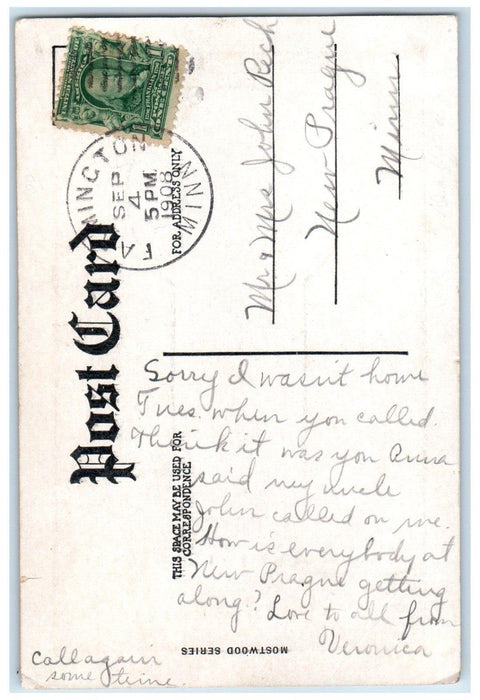 FARMINGTON MINN
SEP
4
5 PM
1908
Post Card
FOR ADDRESS ONLY
Mr & Mrs John Rech
New Prague
Minn
THIS SPACE MAY BE USED FOR
CORRESPONDENCE
Sorry I wasn't home
Tues. when you called.
Think it was you Anna
said my uncle
John called on me.
How is everybody at
New Prague getting
along? Love to all from
Veronica
Call again
some time.
MOSTWOOD SERIES